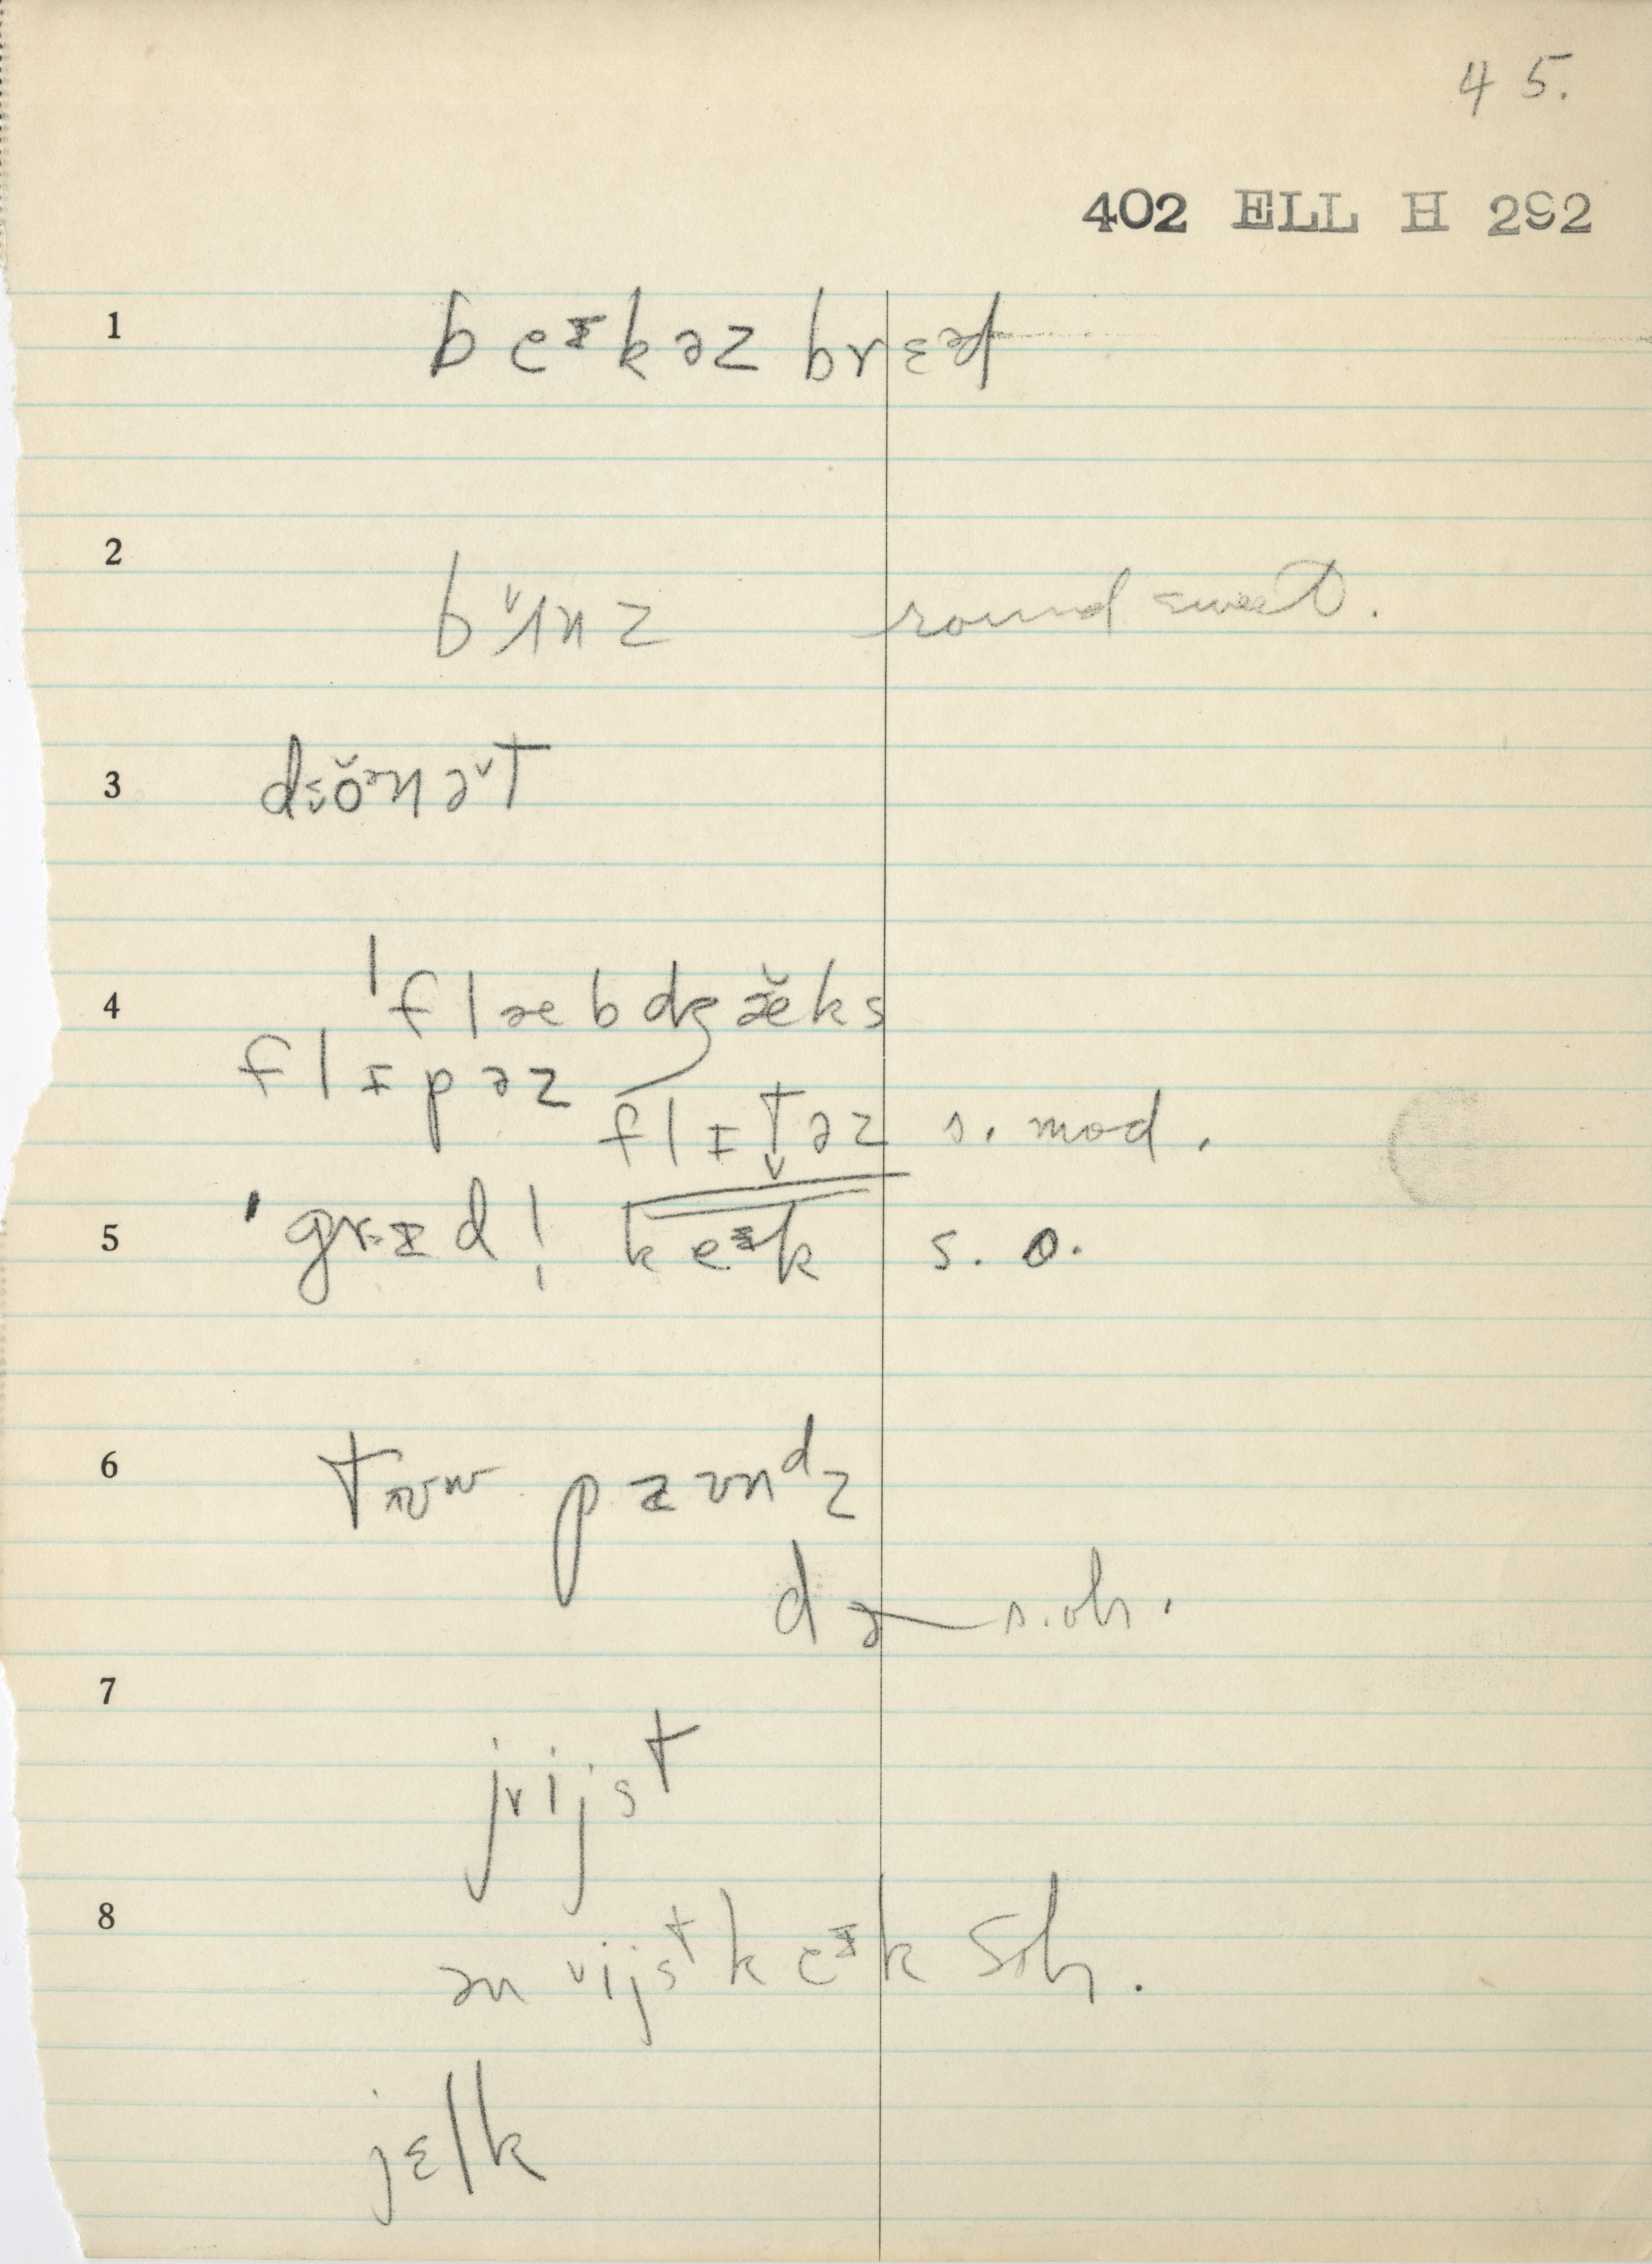 45.
402 ELL H 292
1 beᶦkəz brɛəd
2 b˅ʌnz round sweet.
3 dö̆nə˅t
4 ˈflæbdʒæ̆ks
flɪpəz
flɪt̬əz s. mod.
5 ˈgrɪd| keᶦk s. o.
6 tʊʷ paʊnᵈz
də s. oh.
7 j˅ijst
8 ən ˅ijst keᶦk soh.
jɛlk